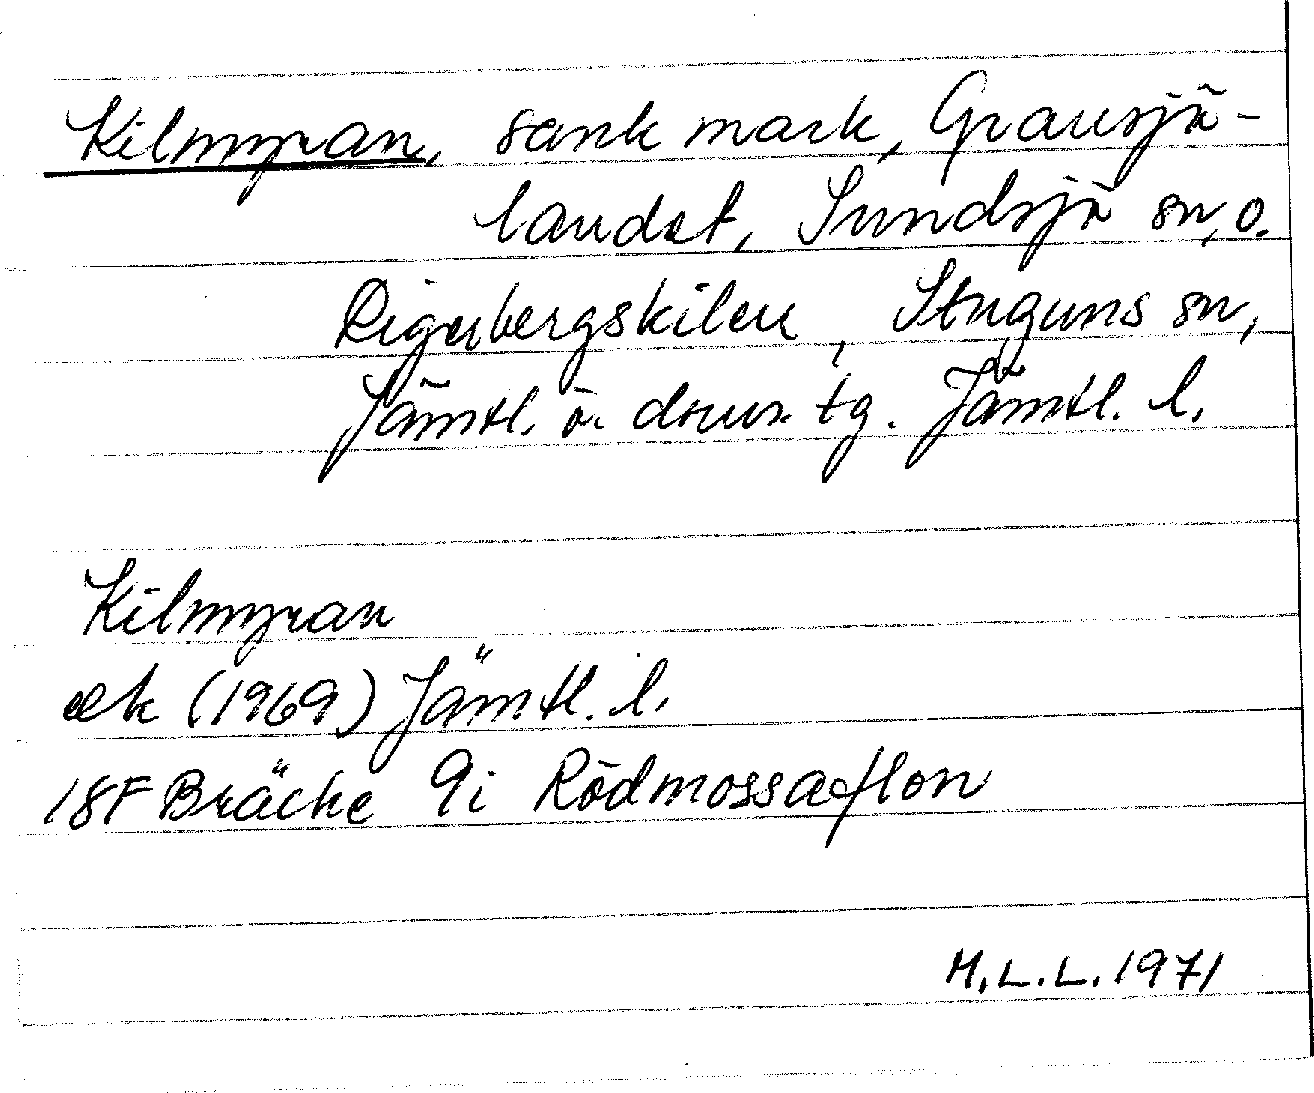 Kilmyran, sank mark, Gransjö-
landet, Sundsjö sn, o.
Digerbergskilen, Stuguns sn,
Jämtl. ö. doms. tg. Jämtl. l.
Kilmyran
ek (1969) Jämtl. l.
18F Bräcke 9i Rödmossaflon
M.L.L. 1971